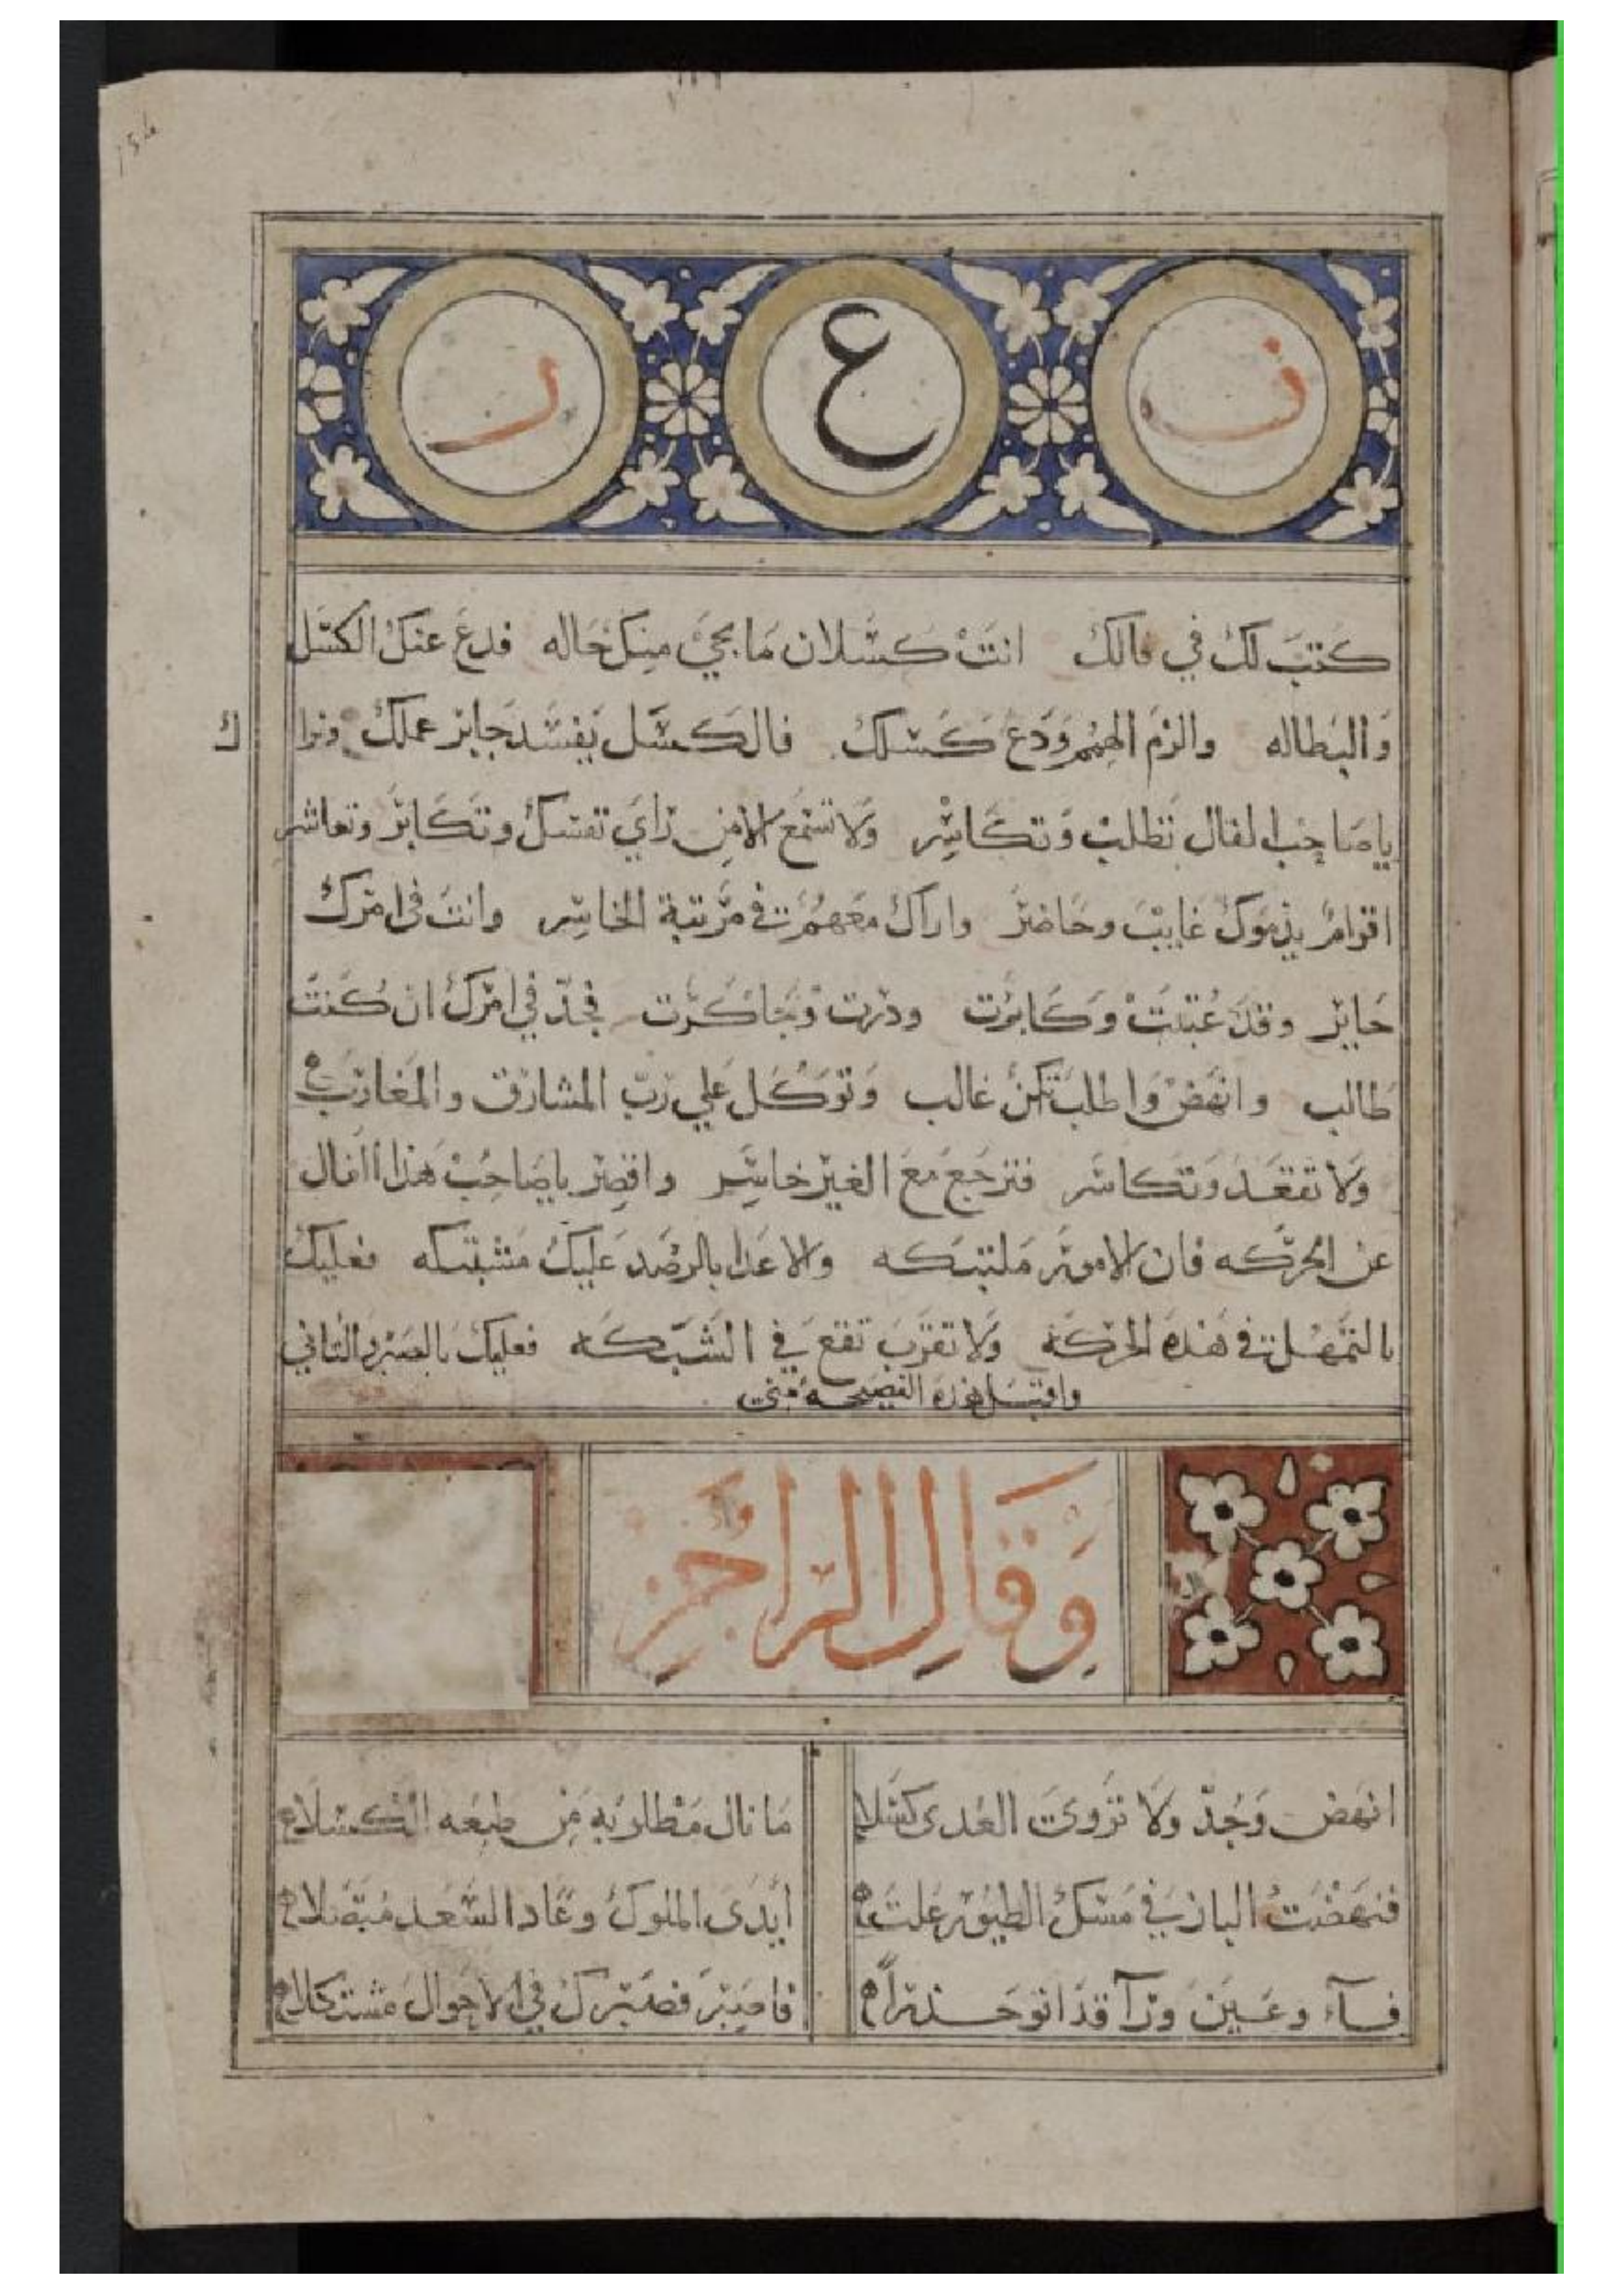 ف ع ر
كتب لك في فالك انت كسلان ما يجي منك حاله فدع عنك الكسل
والبطاله والزم الهمم ودع كسلك فالكسل يفسد جايز عملك ونرا
ك
يا صاحب الفال تطلب وتكاسر ولا تسمع الا من راي نفسك وتكابر وتعاشر
اقوام يذموك غايب وحاضر واراك معهم في مرتبة الخاسر وانت في امرك
حاير وقد عتبت وكابرت ودرت وجاكرت فجد في امرك ان كنت
طالب وانهض واطلب تكن غالب وتوكل علي رب المشارق والمغارب
ولا تقعد وتكاسر فترجع مع الغير خاسر واقصر يا صاحب هذا الفال
عن الحركه فان الامور ملتبكه والاعدا بالرصد عليك مشتبكه فعليك
بالتمهل في هذه الحركه ولا تقرب تقع في الشبكه فعليك بالصبر والتاني
واقبل هذه النصيحه مني
وقال الراجز
انهض وجد ولا تروي العدى كسلا ما نال مطلوبه من طبعه الكسلا
فنهضت الباز في مسك الطيور علت ايدى الملوك وعاد السعد متصلا
فآء وعين ورآ قد اتو حذرا فاصبر فصبرك في الاحوال مشتكلا